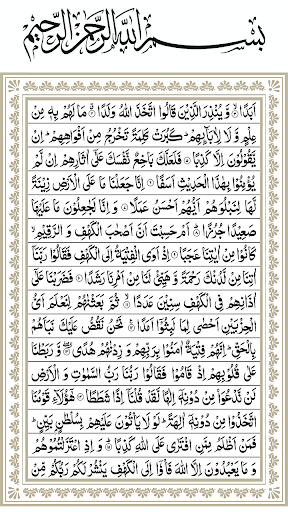 بِسْمِ اللّٰهِ الرَّحْمٰنِ الرَّحِيْمِ
اَبَدًا ۙ وَّ يُنْذِرَ الَّذِيْنَ قَالُوا اتَّخَذَ اللّٰهُ وَلَدًا ۗ مَا لَهُمْ بِهٖ مِنْ
عِلْمٍ وَّ لَا لِاٰبَآئِهِمْ ؕ كَبُرَتْ كَلِمَةً تَخْرُجُ مِنْ اَفْوَاهِهِمْ ؕ اِنْ
يَّقُوْلُوْنَ اِلَّا كَذِبًا ۝ فَلَعَلَّكَ بَاخِعٌ نَّفْسَكَ عَلٰۤى اٰثَارِهِمْ اِنْ لَّمْ
يُؤْمِنُوْا بِهٰذَا الْحَدِيْثِ اَسَفًا ۝ اِنَّا جَعَلْنَا مَا عَلَى الْاَرْضِ زِيْنَةً
لَّهَا لِنَبْلُوَهُمْ اَيُّهُمْ اَحْسَنُ عَمَلًا ۝ وَ اِنَّا لَجٰعِلُوْنَ مَا عَلَيْهَا
صَعِيْدًا جُرُزًا ۝ اَمْ حَسِبْتَ اَنَّ اَصْحٰبَ الْكَهْفِ وَ الرَّقِيْمِ ۙ
كَانُوْا مِنْ اٰيٰتِنَا عَجَبًا ۝ اِذْ اَوَى الْفِتْيَةُ اِلَى الْكَهْفِ فَقَالُوْا رَبَّنَاۤ
اٰتِنَا مِنْ لَّدُنْكَ رَحْمَةً وَّ هَيِّئْ لَنَا مِنْ اَمْرِنَا رَشَدًا ۝ فَضَرَبْنَا عَلٰۤى
اٰذَانِهِمْ فِى الْكَهْفِ سِنِيْنَ عَدَدًا ۝ ثُمَّ بَعَثْنٰهُمْ لِنَعْلَمَ اَىُّ
الْحِزْبَيْنِ اَحْصٰى لِمَا لَبِثُوْۤا اَمَدًا ۝ نَحْنُ نَقُصُّ عَلَيْكَ نَبَاَهُمْ
بِالْحَقِّ ؕ اِنَّهُمْ فِتْيَةٌ اٰمَنُوْا بِرَبِّهِمْ وَ زِدْنٰهُمْ هُدًى ۝ وَّ رَبَطْنَا
عَلٰى قُلُوْبِهِمْ اِذْ قَامُوْا فَقَالُوْا رَبُّنَا رَبُّ السَّمٰوٰتِ وَ الْاَرْضِ
لَنْ نَّدْعُوَا۠ مِنْ دُوْنِهٖۤ اِلٰهًا لَّقَدْ قُلْنَاۤ اِذًا شَطَطًا ۝ هٰۤؤُلَآءِ قَوْمُنَا
اتَّخَذُوْا مِنْ دُوْنِهٖۤ اٰلِهَةً ؕ لَوْ لَا يَاْتُوْنَ عَلَيْهِمْ بِسُلْطٰنٍۭ بَيِّنٍ ؕ
فَمَنْ اَظْلَمُ مِمَّنِ افْتَرٰى عَلَى اللّٰهِ كَذِبًا ۝ وَ اِذِ اعْتَزَلْتُمُوْهُمْ
وَ مَا يَعْبُدُوْنَ اِلَّا اللّٰهَ فَاْوٗۤا اِلَى الْكَهْفِ يَنْشُرْ لَكُمْ رَبُّكُمْ مِّنْ